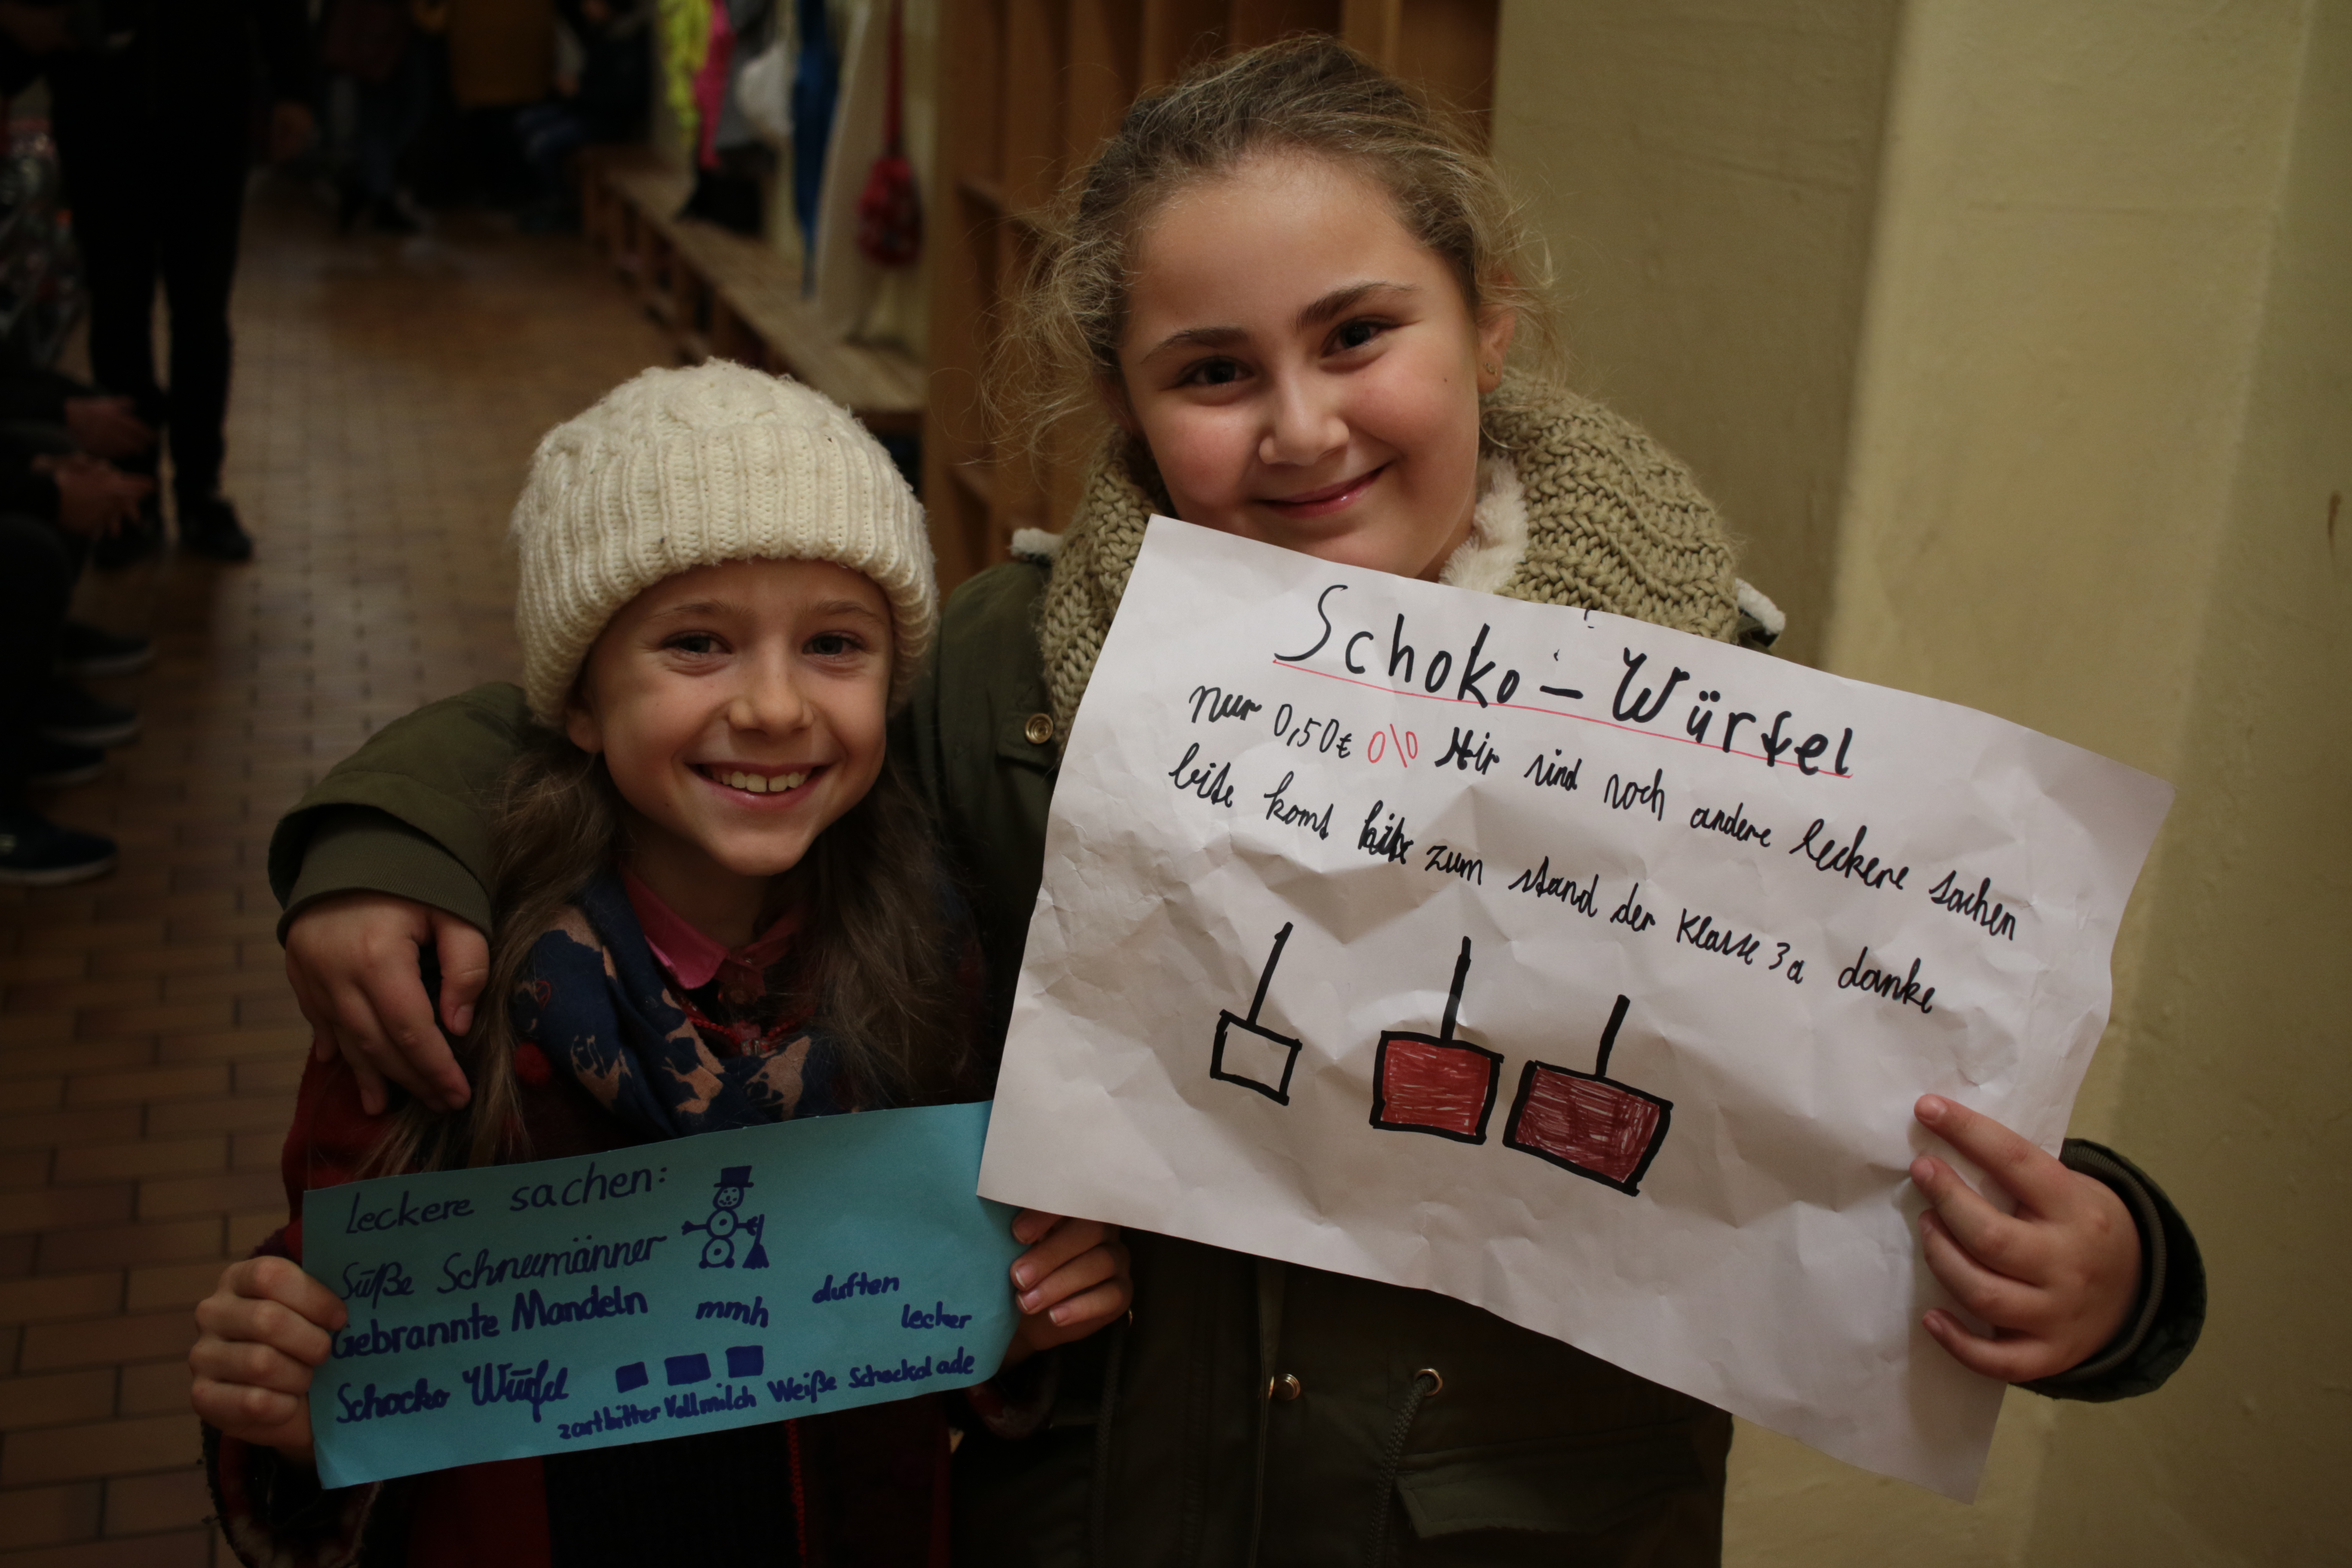 Schoko-Würfel
Nur 0,50€ Hir sind noch andere leckere sachen
bitte komt zum stand der Klasse 3a danke
Leckere sachen:
Süße Schneemänner
Gebrannte Mandeln mmh duften lecker
Schocko Würfel
zartbitter Vollmilch Weiße Schockolade